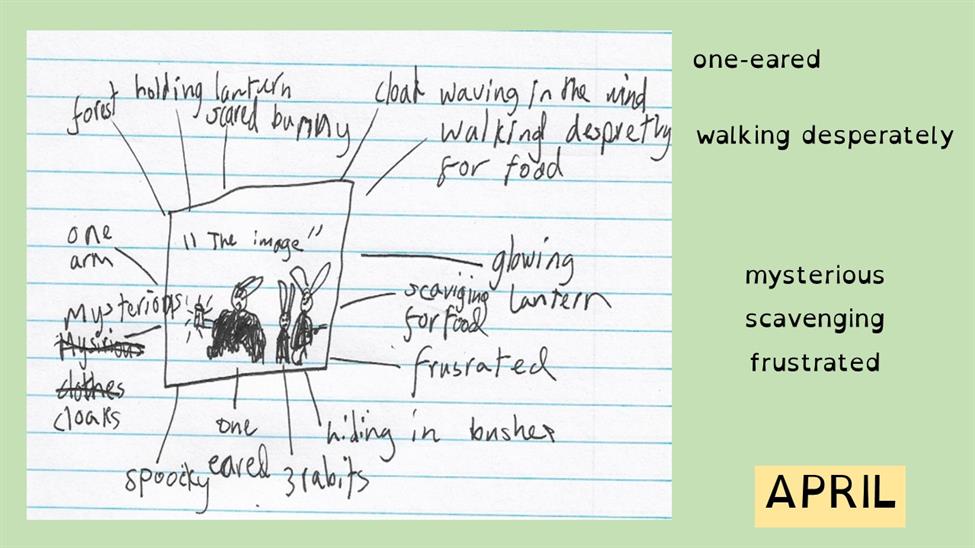 forest
holding lanturn
scared bunny
cloak waving in the wind
walking despretly
for food
one
arm
"The image"
glowing
lantern
scaviging
for food
mysterious
Mysirious
clothes
cloaks
frusrated
one
eared
hiding in bushes
spoocky
3 rabits
one-eared
walking desperately
mysterious
scavenging
frustrated
APRIL